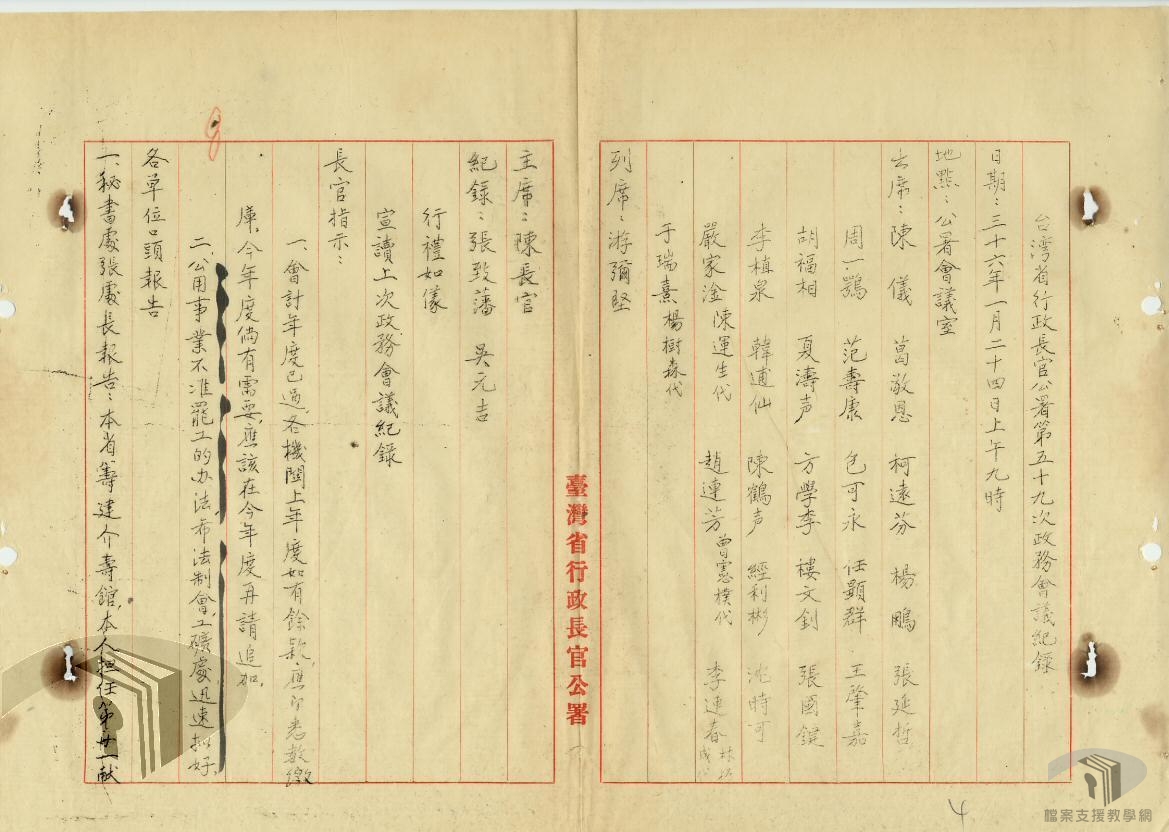 台湾省行政長官公署第五十九次政務會議紀錄
日期：三十六年一月二十四日上午九時
地點：公署會議室
去席：陳儀 葛敬恩 柯遠芬 楊鵬 張延哲
周一鶚 范壽康 包可永 任顯群 王肇嘉
胡福相 夏濤声 方學李 樓文釗 張國鍵
李植泉 韓逋仙 陳鶴声 經利彬 沈時可
嚴家淦 陳運生代 趙連芳 曾憲樸代 李連春 林
于瑞熹 楊樹森代
列席：游彌堅
臺灣省行政長官公署
主席：陳長官
紀錄：張致藩 吴元吉
行禮如儀
宣讀上次政務會議紀錄
長官指示：
一、會計年度已過，各機関上年度如有餘款，應即悉数繳
庫，今年度倘有需要，應該在今年度再請追加。
二、公用事業不准罷工的办法希法制會、工礦處迅速拟好。
各單位口頭報告
一、秘書處張處長報告：本省籌建介壽館，本人担任第廿一献
4
檔案支援教學網